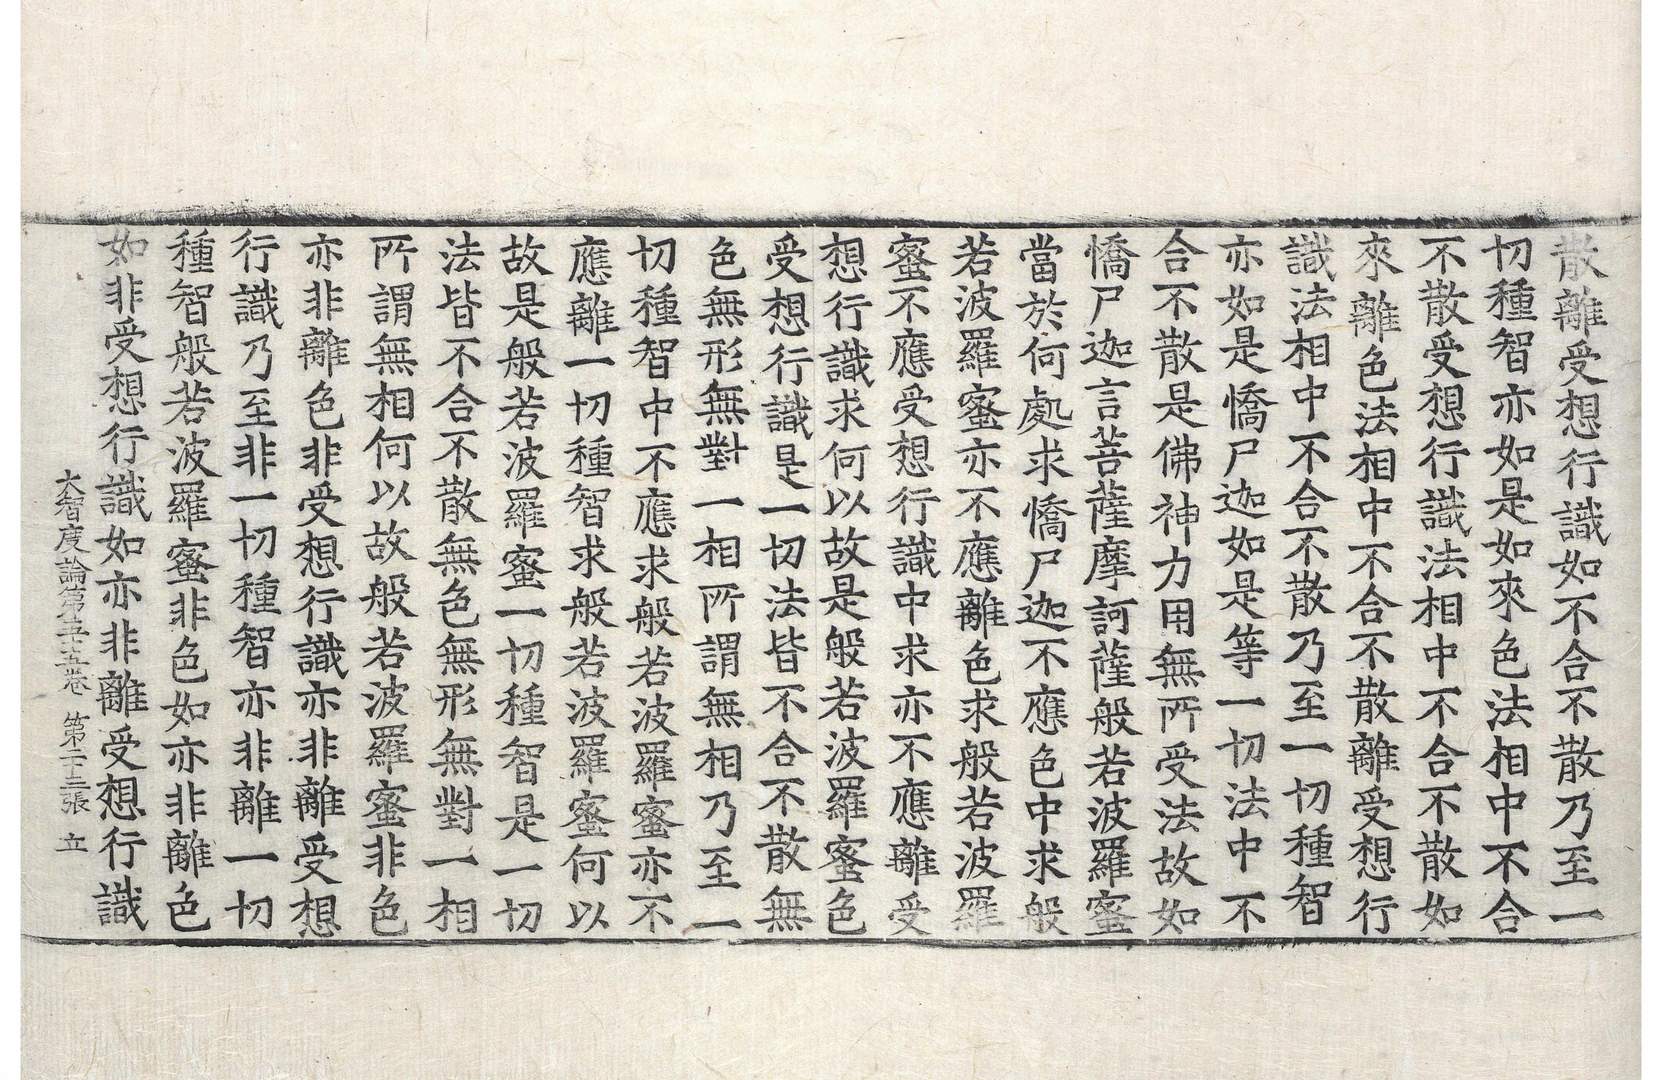 散離受想行識如不合不散乃至一
切種智亦如是如來色法相中不合
不散受想行識法相中不合不散如
來離色法相中不合不散離受想行
識法相中不合不散乃至一切種智
亦如是憍尸迦如是等一切法中不
合不散是佛神力用無所受法故如
憍尸迦言菩薩摩訶薩般若波羅蜜
當於何處求憍尸迦不應色中求般
若波羅蜜亦不應離色求般若波羅
蜜不應受想行識中求亦不應離受
想行識求何以故是般若波羅蜜色
受想行識是一切法皆不合不散無
色無形無對一相所謂無相乃至一
切種智中不應求般若波羅蜜亦不
應離一切種智求般若波羅蜜何以
故是般若波羅蜜一切種智是一切
法皆不合不散無色無形無對一相
所謂無相何以故般若波羅蜜非色
亦非離色非受想行識亦非離受想
行識乃至非一切種智亦非離一切
種智般若波羅蜜非色如亦非離色
如非受想行識如亦非離受想行識
大智度論第五十五卷 第二十三張 立